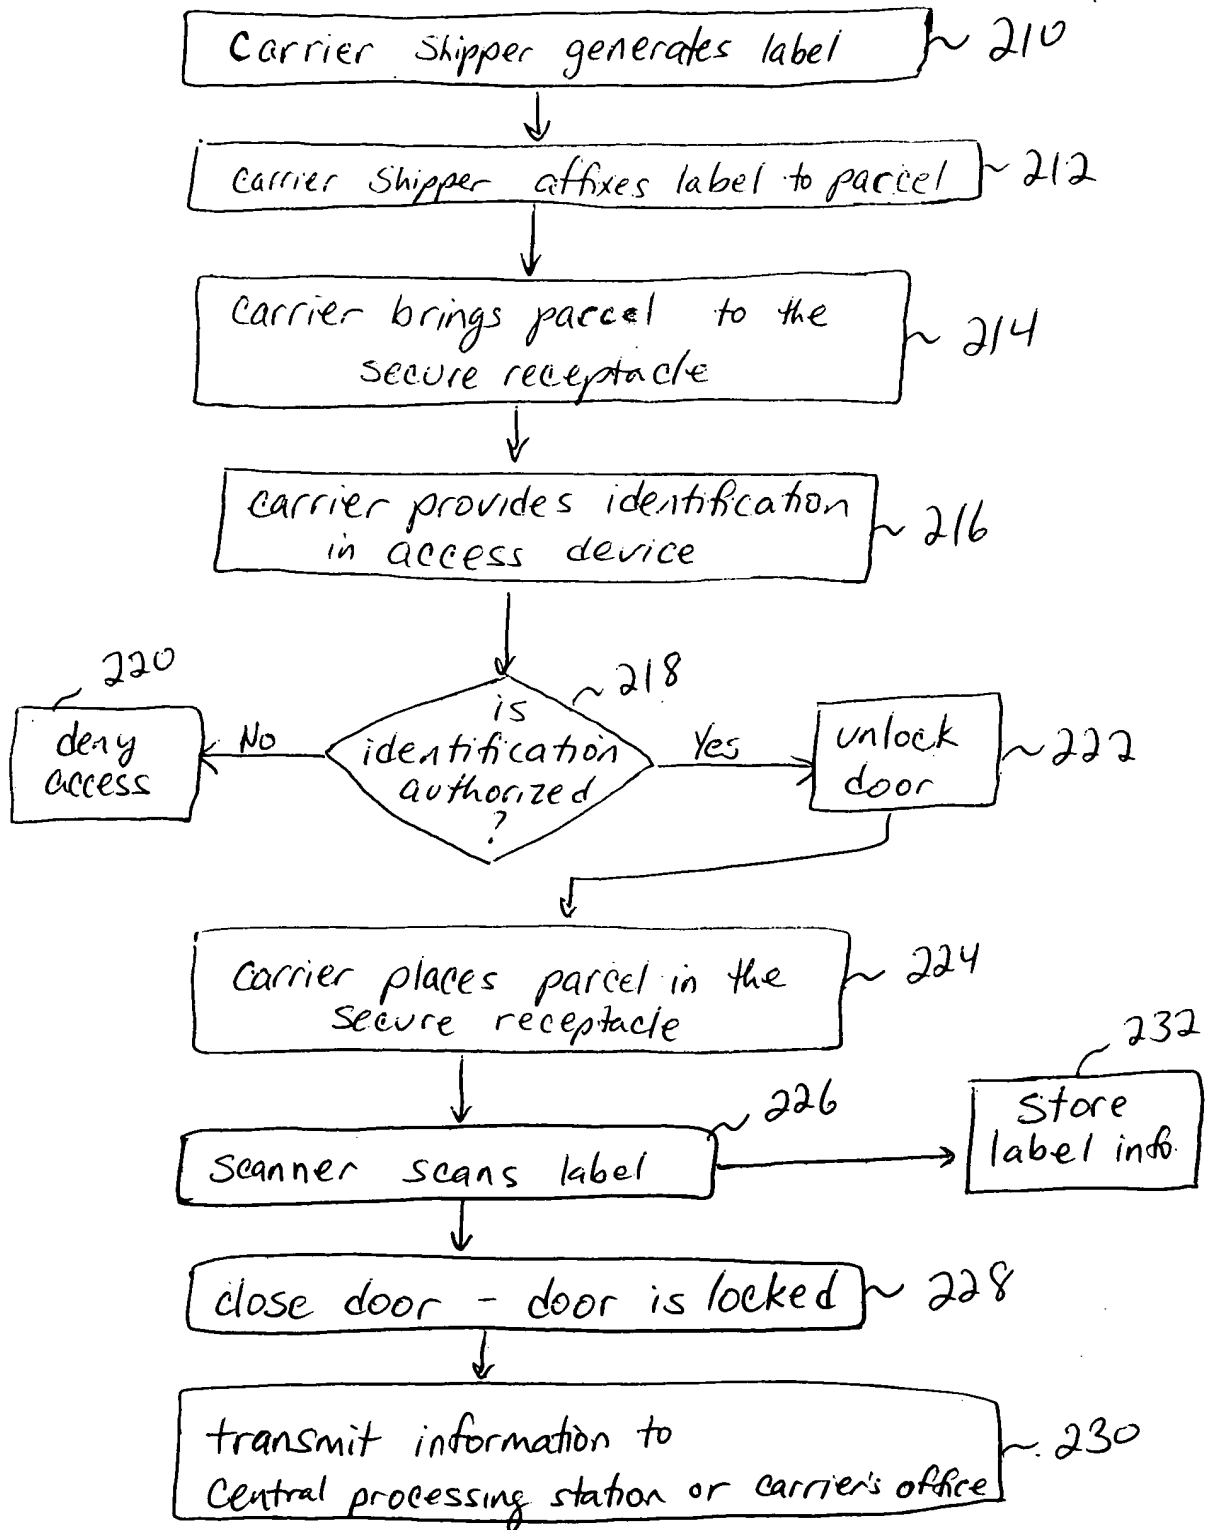 Carrier Shipper generates label
210
Carrier Shipper affixes label to parcel
212
Carrier brings parcel to the
secure receptacle
214
carrier provides identification
in access device
216
220
deny
access
No
218
is
identification
authorized
?
Yes
unlock
door
222
Carrier places parcel in the
secure receptacle
224
232
226
Scanner scans label
Store
label info.
close door - door is locked
228
transmit information to
Central processing station or carrier's office
230